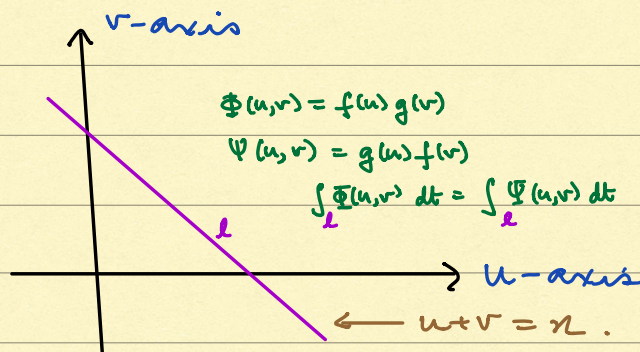 v-axis
Φ(u,v) = f(u) g(v)
Ψ(u,v) = g(u) f(v)
∫_l Φ(u,v) dt = ∫_l Ψ(u,v) dt
l
u-axis
← u+v = x .